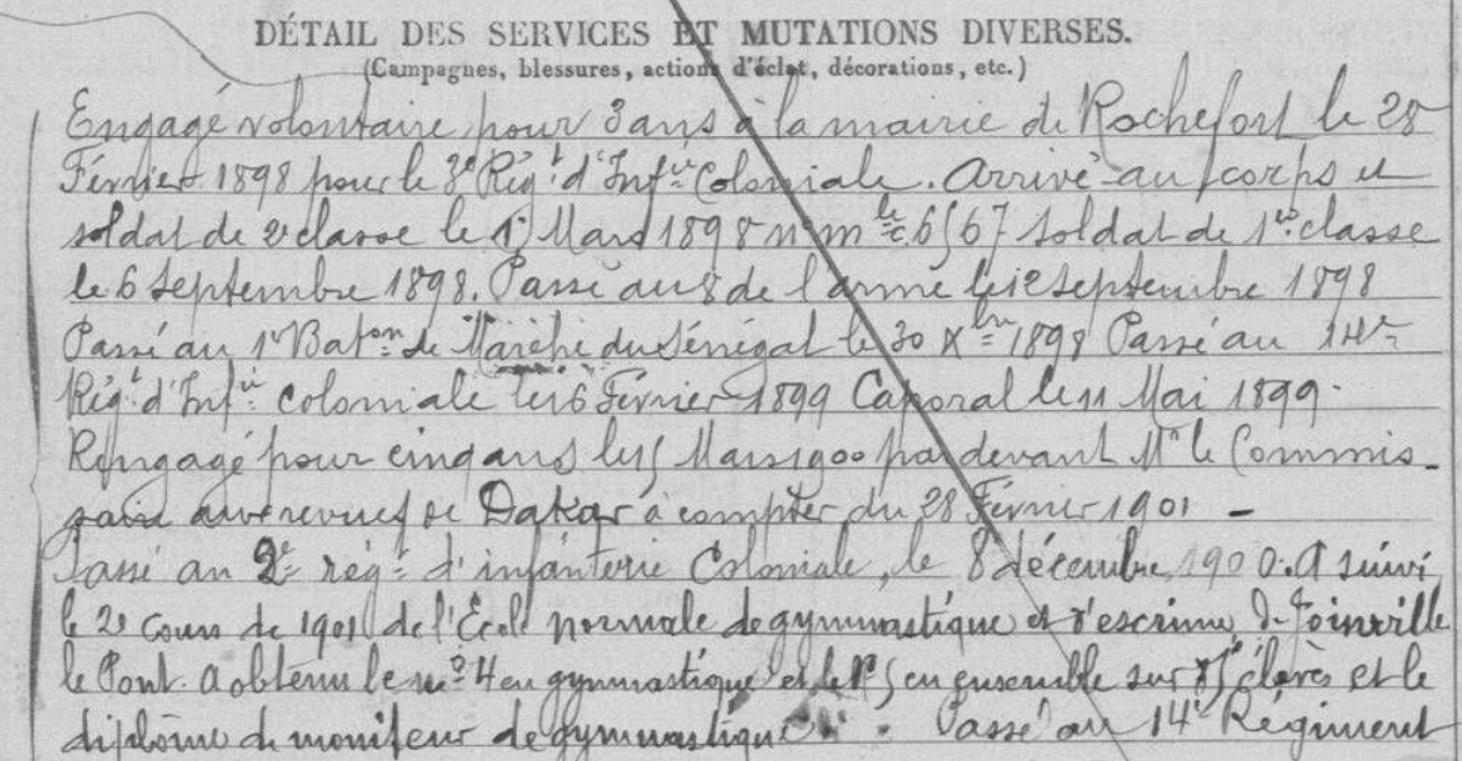 DÉTAIL DES SERVICES ET MUTATIONS DIVERSES.
(Campagnes, blessures, actions d'éclat, décorations, etc.)
Engagé volontaire pour 3 ans à la mairie de Rochefort le 28
Février 1898 pour le 3e Régt d'Infie Coloniale. Arrivé au corps et
soldat de 2e classe le 1er Mars 1898 no mle 6567 soldat de 1re classe
le 6 Septembre 1898. Passé au 8 de l'arme le 12 septembre 1898
Passé au 1er Baton de Marche du Sénégal le 30 Xbre 1898 Passé au 14e
Régt d'Infie Coloniale le 16 Février 1899 Caporal le 11 Mai 1899.
Rengagé pour cinq ans le 15 Mars 1900 par devant Mr le Commis-
saire aux revues de Dakar à compter du 28 Février 1901 -
Passé au 2e régt d'infanterie Coloniale, le 8 décembre 1900. A suivi
le 2e cours de 1901 de l'École normale de gymnastique et d'escrime de Joinville
le Pont. A obtenu le no 4 en gymnastique et le no 5 en ensemble sur élèves et le
diplôme de moniteur de gymnastique. Passé au 14e Régiment